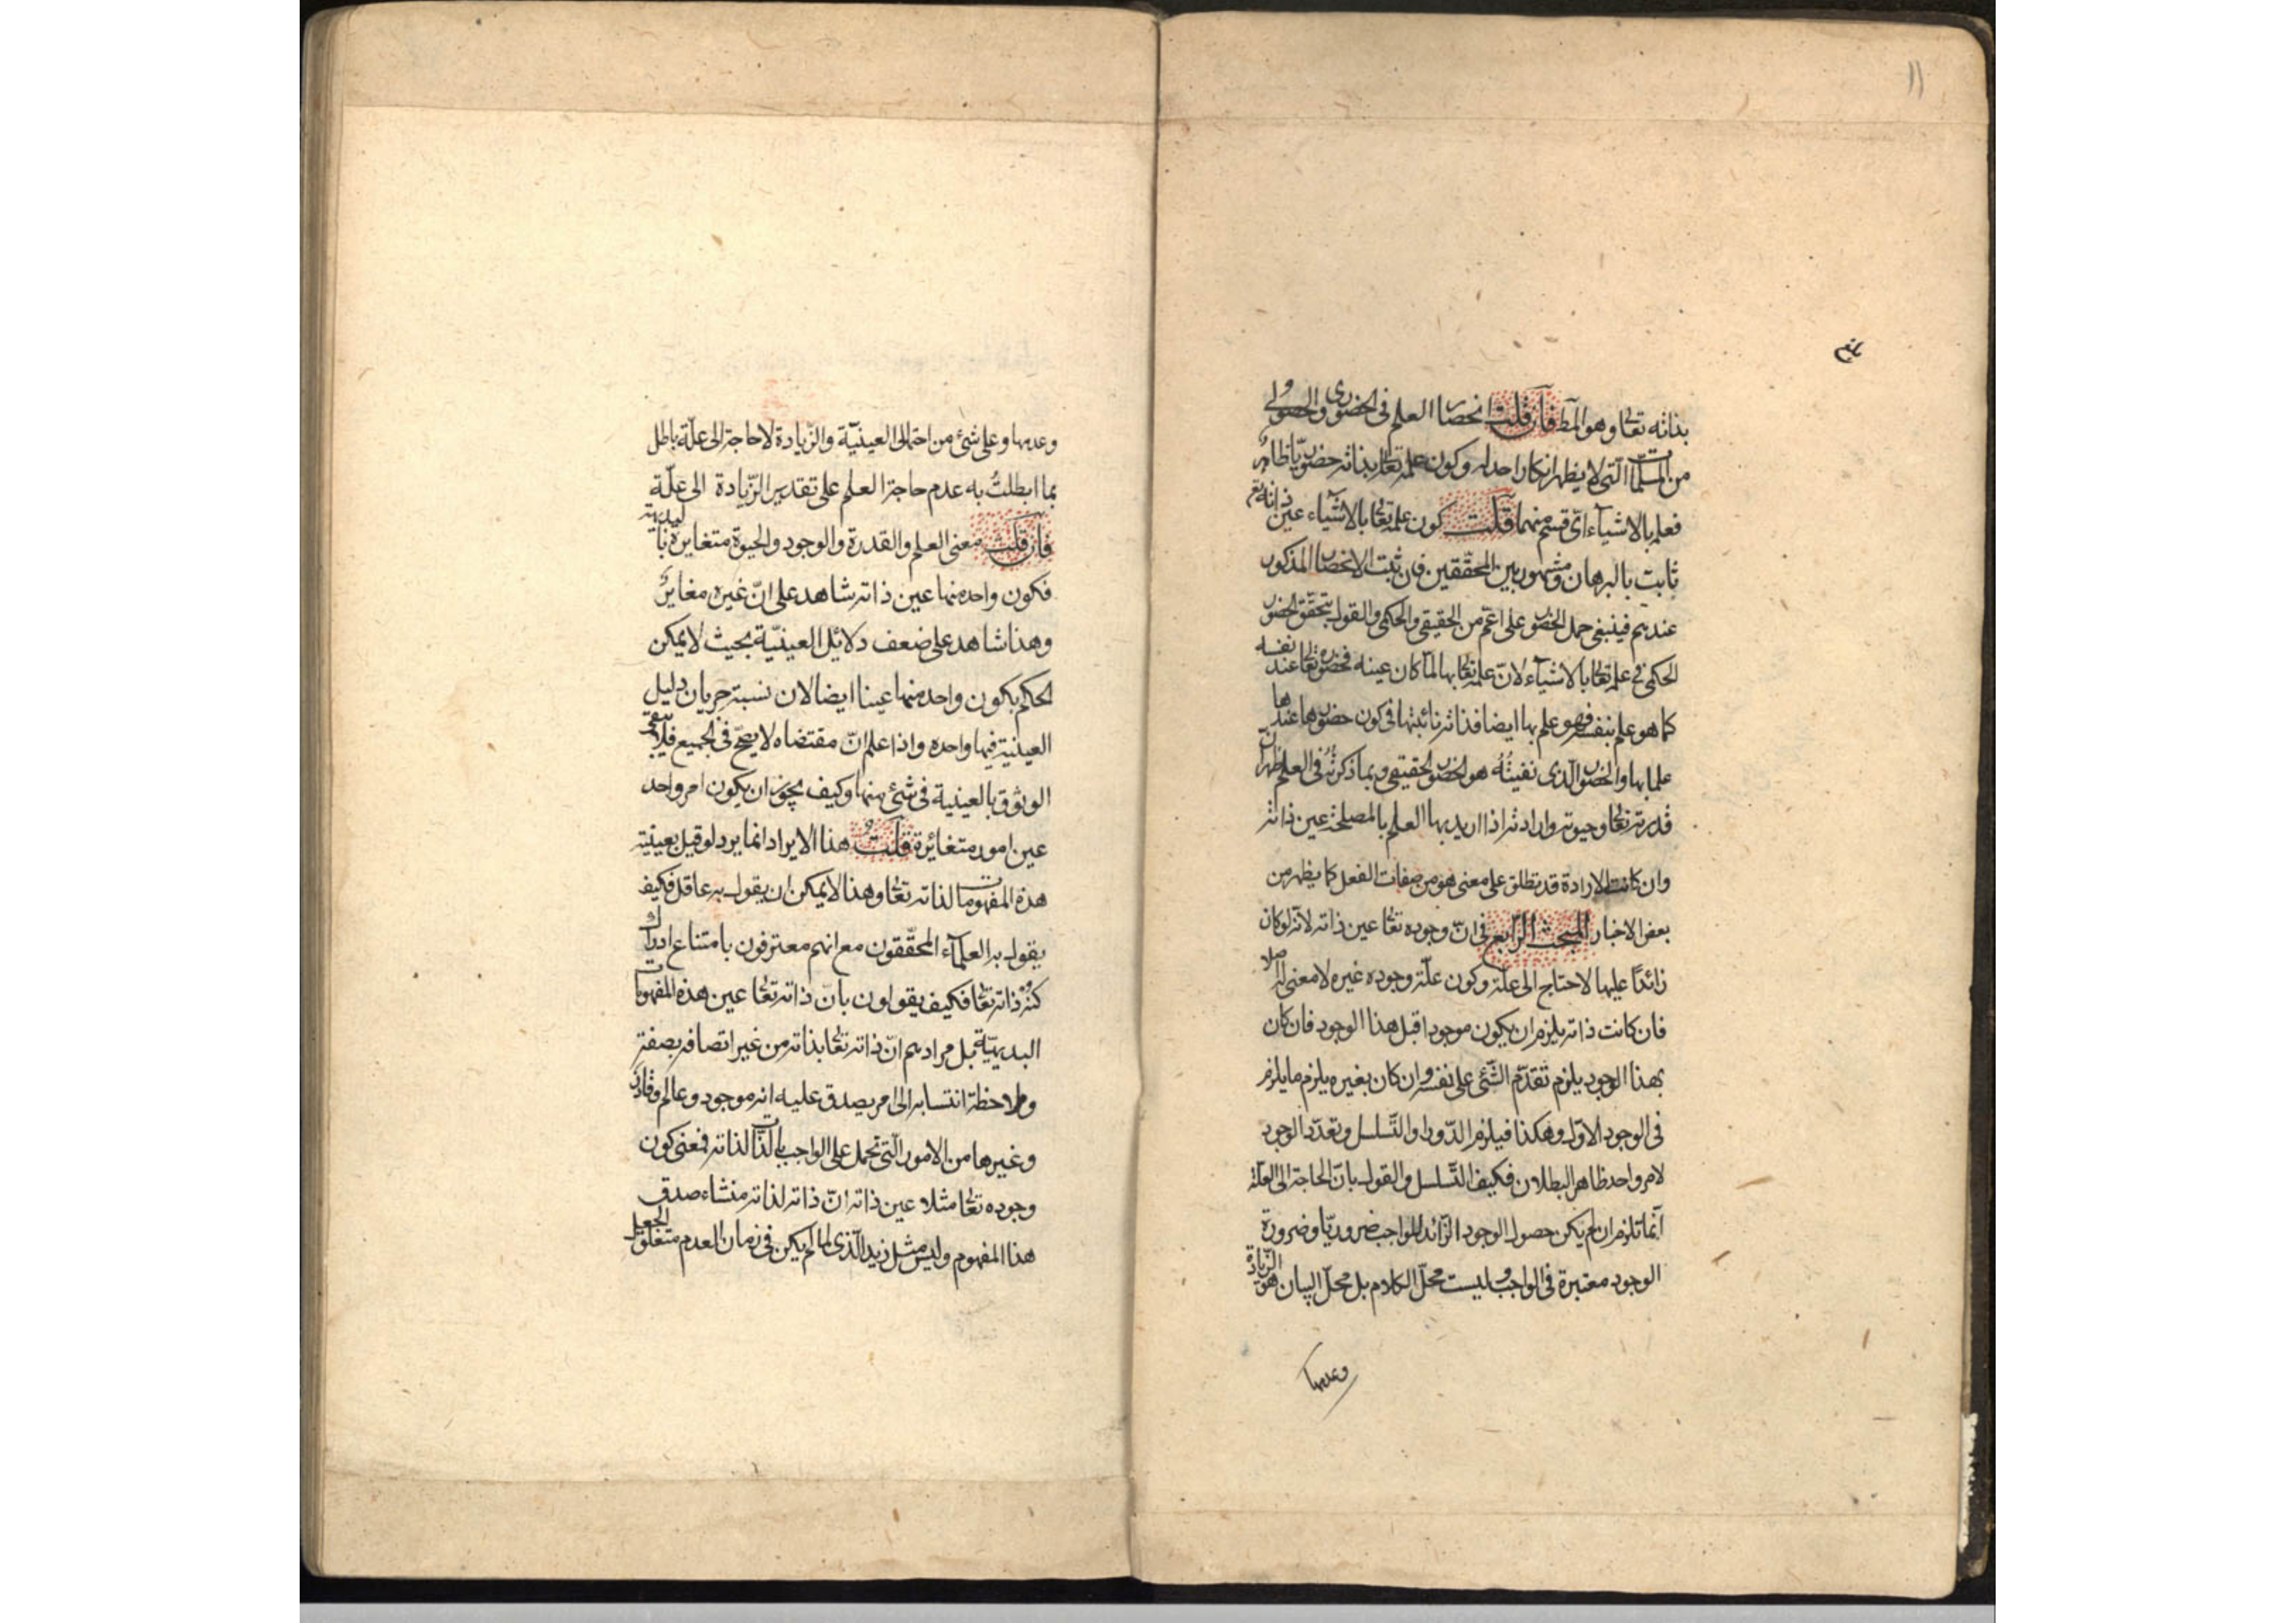 ١١
بلغ
بذاته تعالى وهو المط فان قلت انحصار العلم فى الحضورى والحصولى
من المسلّمات الّتى لا يظهر انكار احد له وكون علمه تعالى بذاته حضوريّا ظاهر
فعلمه بالاشيآء اىّ قسم منهما قلت كون علمه تعالى بالاشيآء عين ذاته تعم
ثابت بالبرهان ومشهور بين المحقّقين فان ثبت الانحصار المذكور
عندهم فينبغى حمل الحضور على اعمّ من الحقيقى والحكمى والقول بتحقّق الحضور
الحكمى فى علمه تعالى بالاشيآء لانّ علمه تعالى بها لمّا كان عينه فحضوره تعالى عند نفسه
كما هو علم بنفسه فهو علم بها ايضا فذاته نائبتها فى كون حضورها عندها
علما بها والحضور الّذى نفيتُه هو الحضور الحقيقى وبما ذكرته فى العلم ظهر انّ
قدرته تعالى وحيوته وارادته اذا اريد بها العلم بالمصلحة عين ذاته
وان كانت الارادة قد تطلق على معنى هو من صفات الفعل كما يظهر من
بعض الاخبار المبحث الرّابع فى انّ وجوده تعالى عين ذاته لانّه لو كان
زائدًا عليها لاحتاج الى علّة وكون علّة وجوده غيره لا معنى له اصلا
فان كانت ذاته يلزم ان يكون موجودا قبل هذا الوجود فان كان
بهذا الوجود يلزم تقدّم الشّئ على نفسه وان كان بغيره يلزم ما يلزم
فى الوجود الاوّل وهكذا فيلزم الدّور او التّسلسل وتعدّد الوجود
لامر واحد ظاهر البطلان فكيف التّسلسل والقول بانّ الحاجة الى العلّة
انّما تلزم ان لم يكن حصول الوجود الزّائد للواجب ضروريّا وضرورة
الوجود معتبرة فى الواجب وليست محلّ الكلام بل محلّ البيان هو الزّيادة
وعدمها
وعدمها وعلى شئ من احتمالى العينيّة والزّيادة لا حاجة الى علّة باطل
بما ابطلتُ به عدم حاجة العلم على تقدير الزّيادة الى علّة
فان قلت معنى العلم والقدرة والوجود والحيوة متغايرة بالبديهة
فكون واحد منها عين ذاته شاهد على انّ غيره مغاير
وهذا شاهد على ضعف دلائل العينيّة بحيث لا يمكن
الحكم بكون واحد منها عينا ايضا لان نسبة جريان دليل
العينيّة فيها واحده واذا علم انّ مقتضاه لا يصحّ فى الجميع فلا يبقى
الوثوق بالعينية فى شئ منها وكيف يجوز ان يكون امر واحد
عين امور متغائرة قلت هذا الايراد انما يرد لو قيل بعينيّة
هذه المفهومات لذاته تعالى وهذا لا يمكن ان يقول به عاقل فكيف
يقول به العلمآء المحقّقون مع انهم معترفون بامتناع ادراك
كنه ذاته تعالى فكيف يقولون بانّ ذاته تعالى عين هذه المفهومات
البديهيّة بل مرادهم انّ ذاته تعالى بذاته من غير اتصافه بصفة
وملاحظة انتسابه الى امر يصدق عليه انه موجود وعالم وقادر
وغيرها من الامور الّتى تحمل على الواجب بالذّات لذاته فمعنى كون
وجوده تعالى مثلا عين ذاته انّ ذاته لذاته منشاء صدق
هذا المفهوم وليس مثل زيد الّذى لمّا لم يكن فى زمان العدم متعلّق الجعل